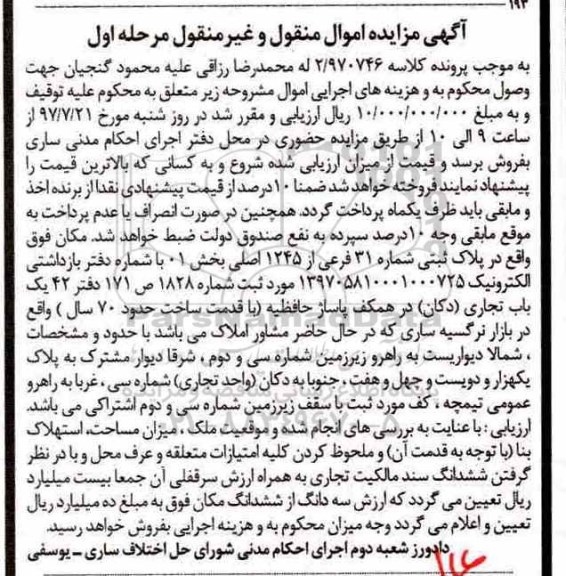 ۱۹۳
آگهی مزایده اموال منقول و غیرمنقول مرحله اول
به موجب پرونده کلاسه ۲/۹۷۰۷۴۶ له محمدرضا رزاقی علیه محمود گنجیان جهت
وصول محکوم به و هزینه های اجرایی اموال مشروحه زیر متعلق به محکوم علیه توقیف
و به مبلغ ۱۰/۰۰۰/۰۰۰/۰۰۰ ریال ارزیابی و مقرر شد در روز شنبه مورخ ۹۷/۷/۲۱ از
ساعت ۹ الی ۱۰ از طریق مزایده حضوری در محل دفتر اجرای احکام مدنی ساری
بفروش برسد و قیمت از میزان ارزیابی شده شروع و به کسانی که بالاترین قیمت را
پیشنهاد نمایند فروخته خواهد شد ضمنا ۱۰درصد از قیمت پیشنهادی نقدا از برنده اخذ
و مابقی باید ظرف یکماه پرداخت گردد. همچنین در صورت انصراف یا عدم پرداخت به
موقع مابقی وجه ۱۰درصد سپرده به نفع صندوق دولت ضبط خواهد شد. مکان فوق
واقع در پلاک ثبتی شماره ۳۱ فرعی از ۱۲۴۵ اصلی بخش ۰۱ با شماره دفتر بازداشتی
الکترونیک ۱۳۹۷۰۵۸۱۰۰۰۱۰۰۰۷۲۵ مورد ثبت شماره ۱۸۲۸ ص ۱۷۱ دفتر ۴۲ یک
باب تجاری (دکان) در همکف پاساژ حافظیه (با قدمت ساخت حدود ۷۰ سال ) واقع
در بازار نرگسیه ساری که در حال حاضر مشاور املاک می باشد با حدود و مشخصات
، شمالا دیواریست به راهرو زیرزمین شماره سی و دوم ، شرقا دیوار مشترک به پلاک
یکهزار و دویست و چهل و هفت ، جنوبا به دکان (واحد تجاری) شماره سی ، غربا به راهرو
عمومی تیمچه ، کف مورد ثبت با سقف زیرزمین شماره سی و دوم اشتراکی می باشد.
ارزیابی : با عنایت به بررسی های انجام شده و موقعیت ملک ، میزان مساحت، استهلاک
بنا (با توجه به قدمت آن) و ملحوظ کردن کلیه امتیازات متعلقه و عرف محل و با در نظر
گرفتن ششدانگ سند مالکیت تجاری به همراه ارزش سرقفلی آن جمعا بیست میلیارد
ریال تعیین می گردد که ارزش سه دانگ از ششدانگ مکان فوق به مبلغ ده میلیارد ریال
تعیین و اعلام می گردد وجه میزان محکوم به و هزینه اجرایی بفروش خواهد رسید.
دادورز شعبه دوم اجرای احکام مدنی شورای حل اختلاف ساری ـ یوسفی